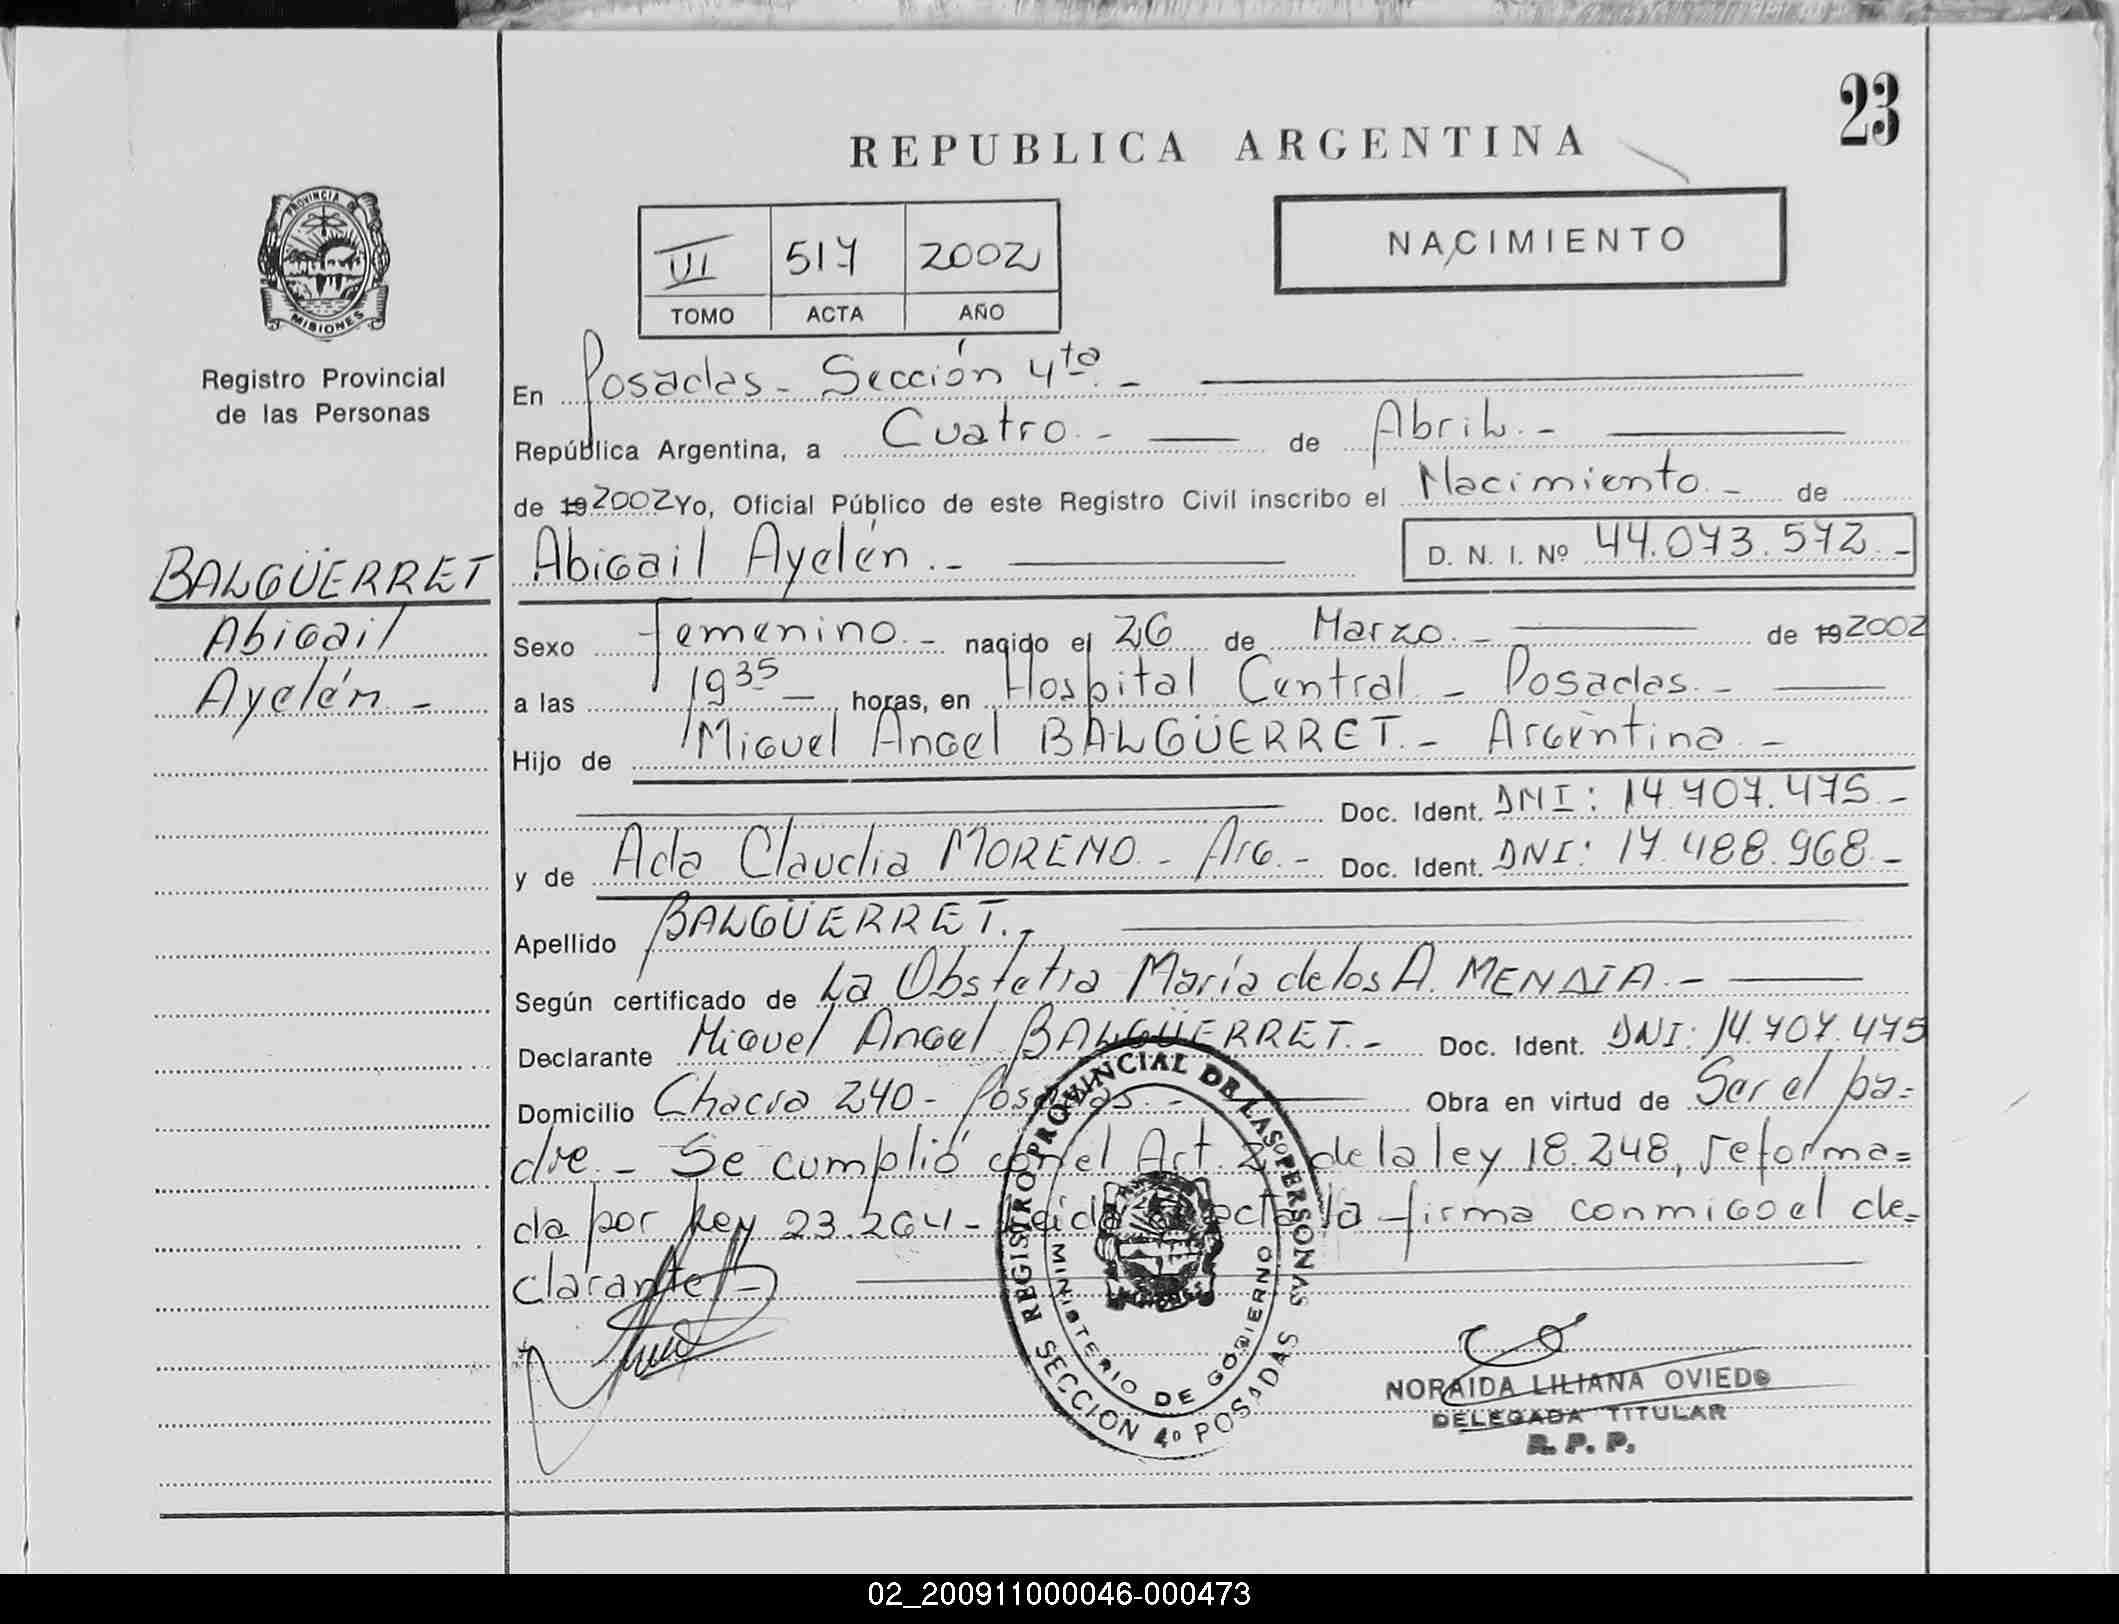 23
REPUBLICA ARGENTINA
PROVINCIA DE
MISIONES
Registro Provincial
de las Personas
VI 517 2002
TOMO ACTA AÑO
NACIMIENTO
En Posadas - Sección 4ta. -
República Argentina, a Cuatro. - de Abril. -
de 19 2002 Yo, Oficial Público de este Registro Civil inscribo el Nacimiento. - de
BALGÜERRET
Abigail
Ayelén -
Abigail Ayelén. - D. N. I. Nº 44.073.572. -
Sexo Femenino. - nacido el 26 de Marzo. - de 19 2002
a las 19 35 - horas, en Hospital Central - Posadas. -
Hijo de Miguel Angel BALGÜERRET. - Argentina -
Doc. Ident. DNI: 14.707.475. -
y de Ada Claudia MORENO - Arg. - Doc. Ident. DNI: 17.488.968. -
Apellido BALGÜERRET. -
Según certificado de La Obstetra María de los A. -
Declarante Miguel Angel BALGÜERRET. - Doc. Ident. DNI: 14.707.475
Domicilio Chacra 240 - Posadas. - Obra en virtud de Ser el pa=
dre. - Se cumplió con el Art. 2 de la ley 18.248, reforma=
da por Ley 23.264 - Leida el acta la firma conmigo el de=
clarante. -
REGISTRO PROVINCIAL DE LAS PERSONAS
MINISTERIO DE GOBIERNO
SECCION 4º POSADAS
NORAIDA LILIANA OVIEDO
DELEGADA TITULAR
R. P. P.
02_200911000046-000473